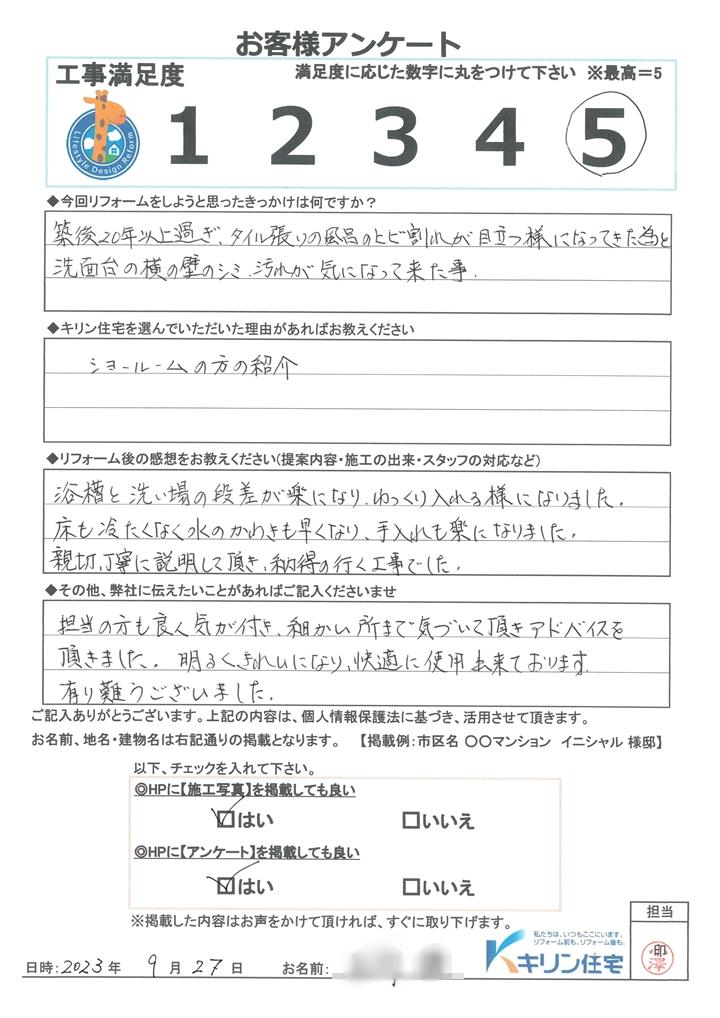 お客様アンケート
工事満足度 満足度に応じた数字に丸をつけて下さい ※最高=5
1 2 3 4 5
Lifestyle Design Reform
◆今回リフォームをしようと思ったきっかけは何ですか?
築後20年以上過ぎ、タイル張りの風呂のヒビ割れが目立つ様になってきた為と
洗面台の横の壁のシミ、汚れが気になって来た事.
◆キリン住宅を選んでいただいた理由があればお教えください
ショールームの方の紹介
◆リフォーム後の感想をお教えください(提案内容・施工の出来・スタッフの対応など)
浴槽と洗い場の段差が楽になり、ゆっくり入れる様になりました.
床も冷たくなく水のかわきも早くなり、手入れも楽になりました.
親切、丁寧に説明して頂き、納得の行く工事でした.
◆その他、弊社に伝えたいことがあればご記入くださいませ
担当の方も良く気が付き、細かい所まで気づいて頂きアドバイスを
頂きました. 明るく、きれいになり、快適に使用出来ております.
有り難うございました.
ご記入ありがとうございます。上記の内容は、個人情報保護法に基づき、活用させて頂きます。
お名前、地名・建物名は右記通りの掲載となります。 【掲載例:市区名 〇〇マンション イニシャル 様邸】
以下、チェックを入れて下さい。
◎HPに【施工写真】を掲載しても良い
はい いいえ
◎HPに【アンケート】を掲載しても良い
はい いいえ
※掲載した内容はお声をかけて頂ければ、すぐに取り下げます。
担当
私たちは、いつもここにいます。
リフォーム前も、リフォーム後も。
キリン住宅
日時:2023年 9月27日 お名前: